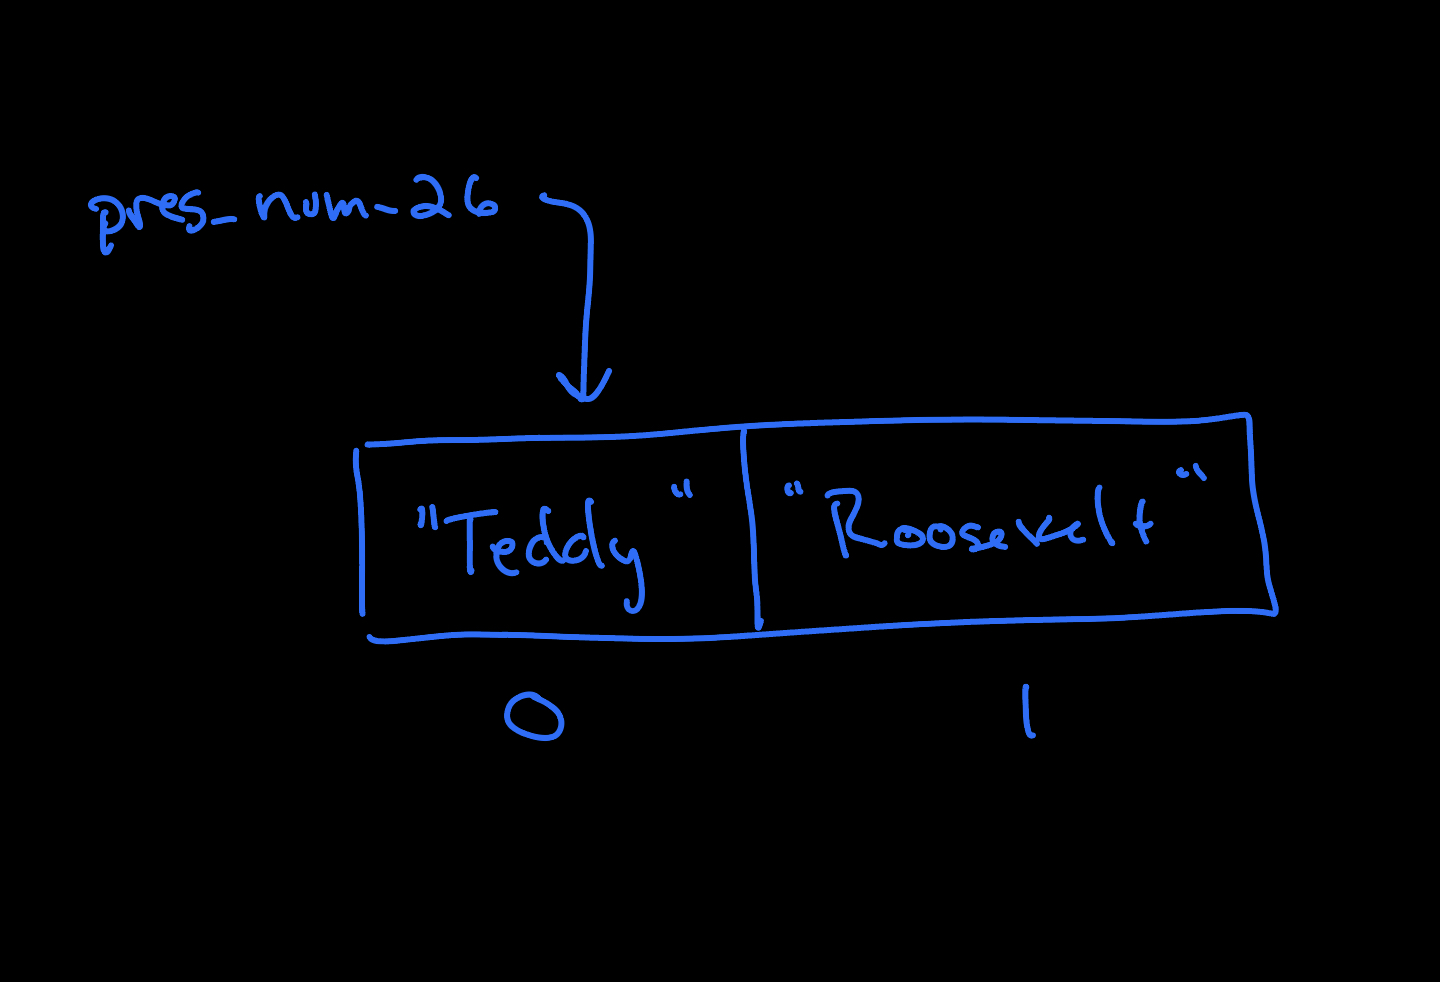 pres_num_26
"Teddy" "Roosevelt"
0 1